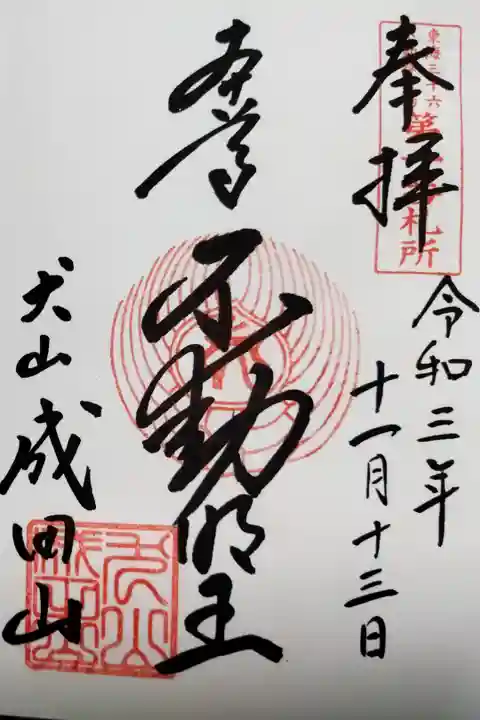 奉拝
東海三十六
札所
令和三年
十一月十三日
本尊
不動明王
犬山成田山